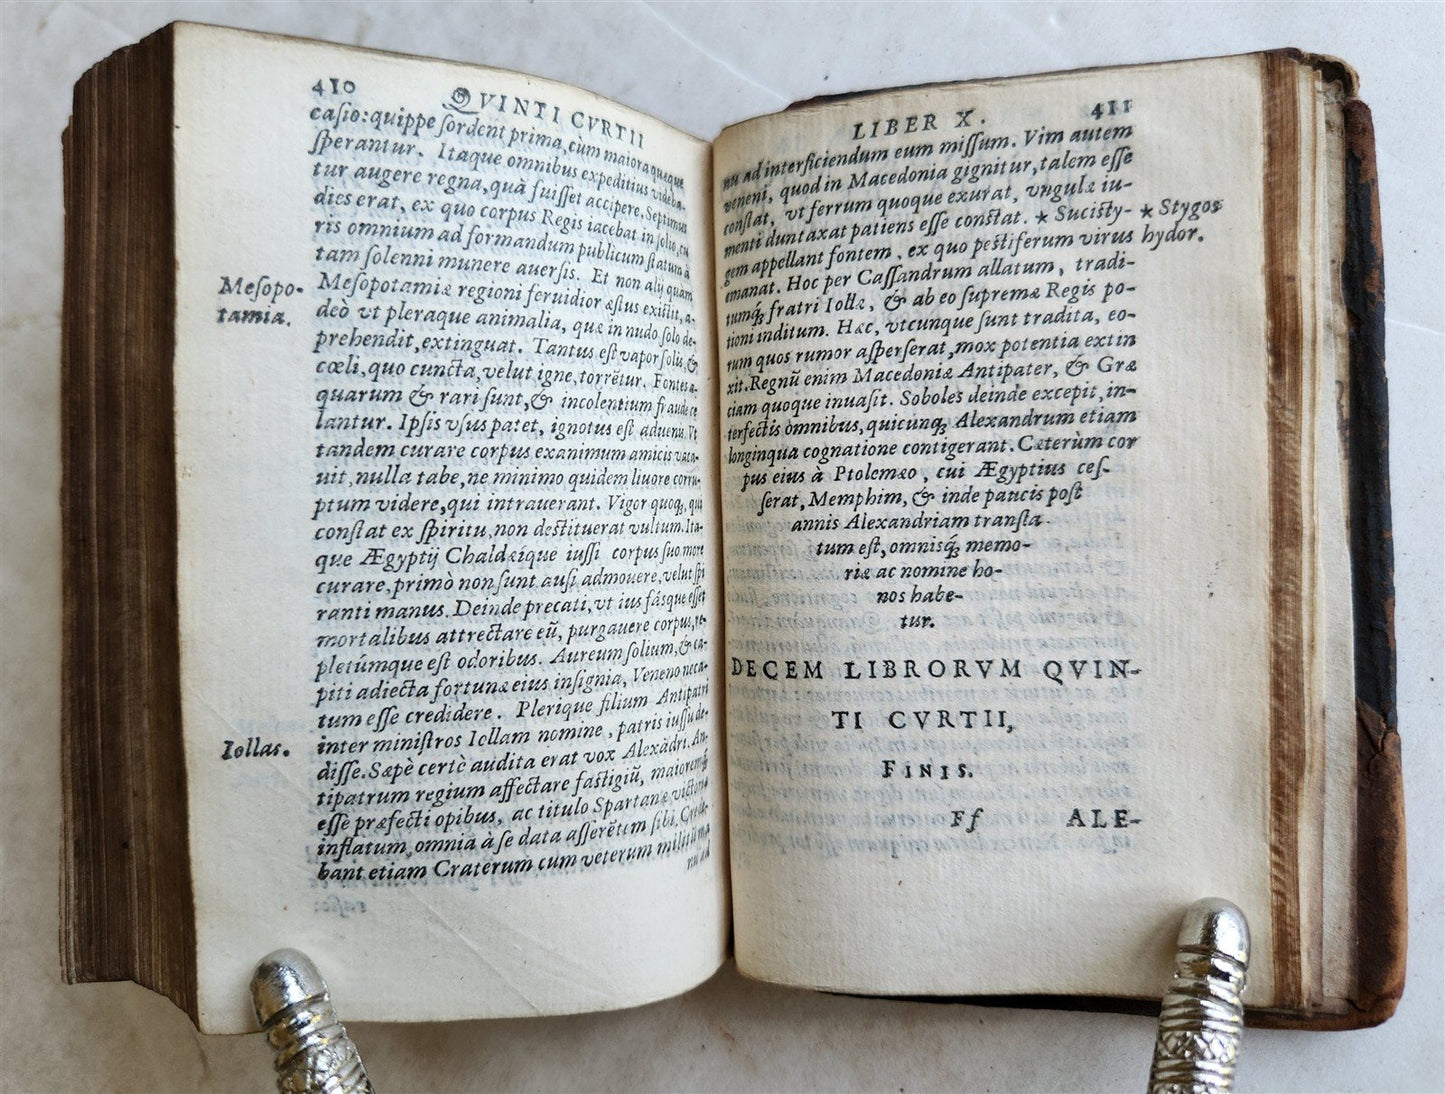 410
QVINTI CVRTII
casio: quippe sordent prima, cum maiora quæque
sperantur. Itaque omnibus expeditius videba-
tur augere regna, quà fuisset accipere. Septimus
dies erat, ex quo corpus Regis iacebat in solio, cu
ris omnium ad formandum publicum statum à
tam solenni munere auersis. Et non alij quam
Mesopo-
tamia.
Mesopotamiæ regioni feruidior æstus existit, a-
deò vt pleraque animalia, quæ in nudo solo de-
prehendit, extinguat. Tantus est vapor solis, &
cœli, quo cuncta, velut igne, torrētur. Fontes a-
quarum & rari sunt, & incolentium fraude ce
lantur. Ipsis vsus patet, ignotus est aduenis. Vt
tandem curare corpus exanimum amicis vaca-
uit, nulla tabe, ne minimo quidem liuore corru-
ptum videre, qui intrauerant. Vigor quoq, qui
constat ex spiritu, non destituerat vultum. Ita-
que Ægyptij Chaldæique iussi corpus suo more
curare, primò non sunt ausi admouere, velut spi
ranti manus. Deinde precati, vt ius fásque esset
mortalibus attrectare eū, purgauere corpus, re-
pletúmque est odoribus. Aureum solium, & ca-
piti adiecta fortunæ eius insignia, Veneno neca-
tum esse credidere. Plerique filium Antipatri
Iollas.
inter ministros Iollam nomine, patris iussu de-
disse. Sæpè certè audita erat vox Alexādri. An-
tipatrum regium affectare fastigiū, maioremq
esse præfecti opibus, ac titulo Spartanæ victoriæ
inflatum, omnia à se data asserētem sibi. Crede-
bant etiam Craterum cum veterum militū ma
nu ad
LIBER X.
411
nu ad interficiendum eum missum. Vim autem
veneni, quod in Macedonia gignitur, talem esse
constat, vt ferrum quoque exurat, vngulæ iu-
menti duntaxat patiens esse constat. * Sucisty-
* Stygos
hydor.
gem appellant fontem, ex quo pestiferum virus
emanat. Hoc per Cassandrum allatum, tradi-
tumq fratri Iollæ, & ab eo supremæ Regis po-
tioni inditum. Hæc, vtcunque sunt tradita, eo-
rum quos rumor asperserat, mox potentia extin
xit. Regnū enim Macedoniæ Antipater, & Græ
ciam quoque inuasit. Soboles deinde excepit, in-
terfectis omnibus, quicunq Alexandrum etiam
longinqua cognatione contigerant. Cæterùm cor
pus eius à Ptolemæo, cui Ægyptius ces-
serat, Memphim, & inde paucis post
annis Alexandriam transla
tum est, omnisq memo-
riæ ac nomine ho-
nos habe-
tur.
DECEM LIBRORVM QVIN-
TI CVRTII,
FINIS.
Ff ALE-